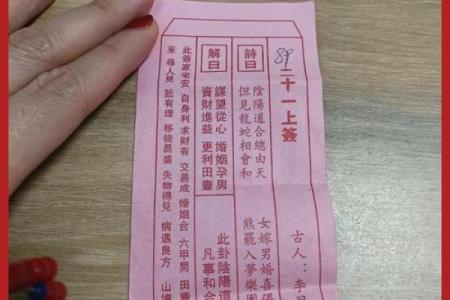 古人：李
89
二十一上簽
詩曰
陰陽道合總由天 女嫁男婚喜
但見龍蛇相會和 熊羆入夢樂
解曰
謀望從心 婚姻孕男 此卦陰陽道
資財進益 更利田 凡事和合
此簽家宅安 自身利 求財有 交易成 婚姻合 六甲男 田
至 尋人見 訟有理 移徙 盛 失物得見 病遇良方 山